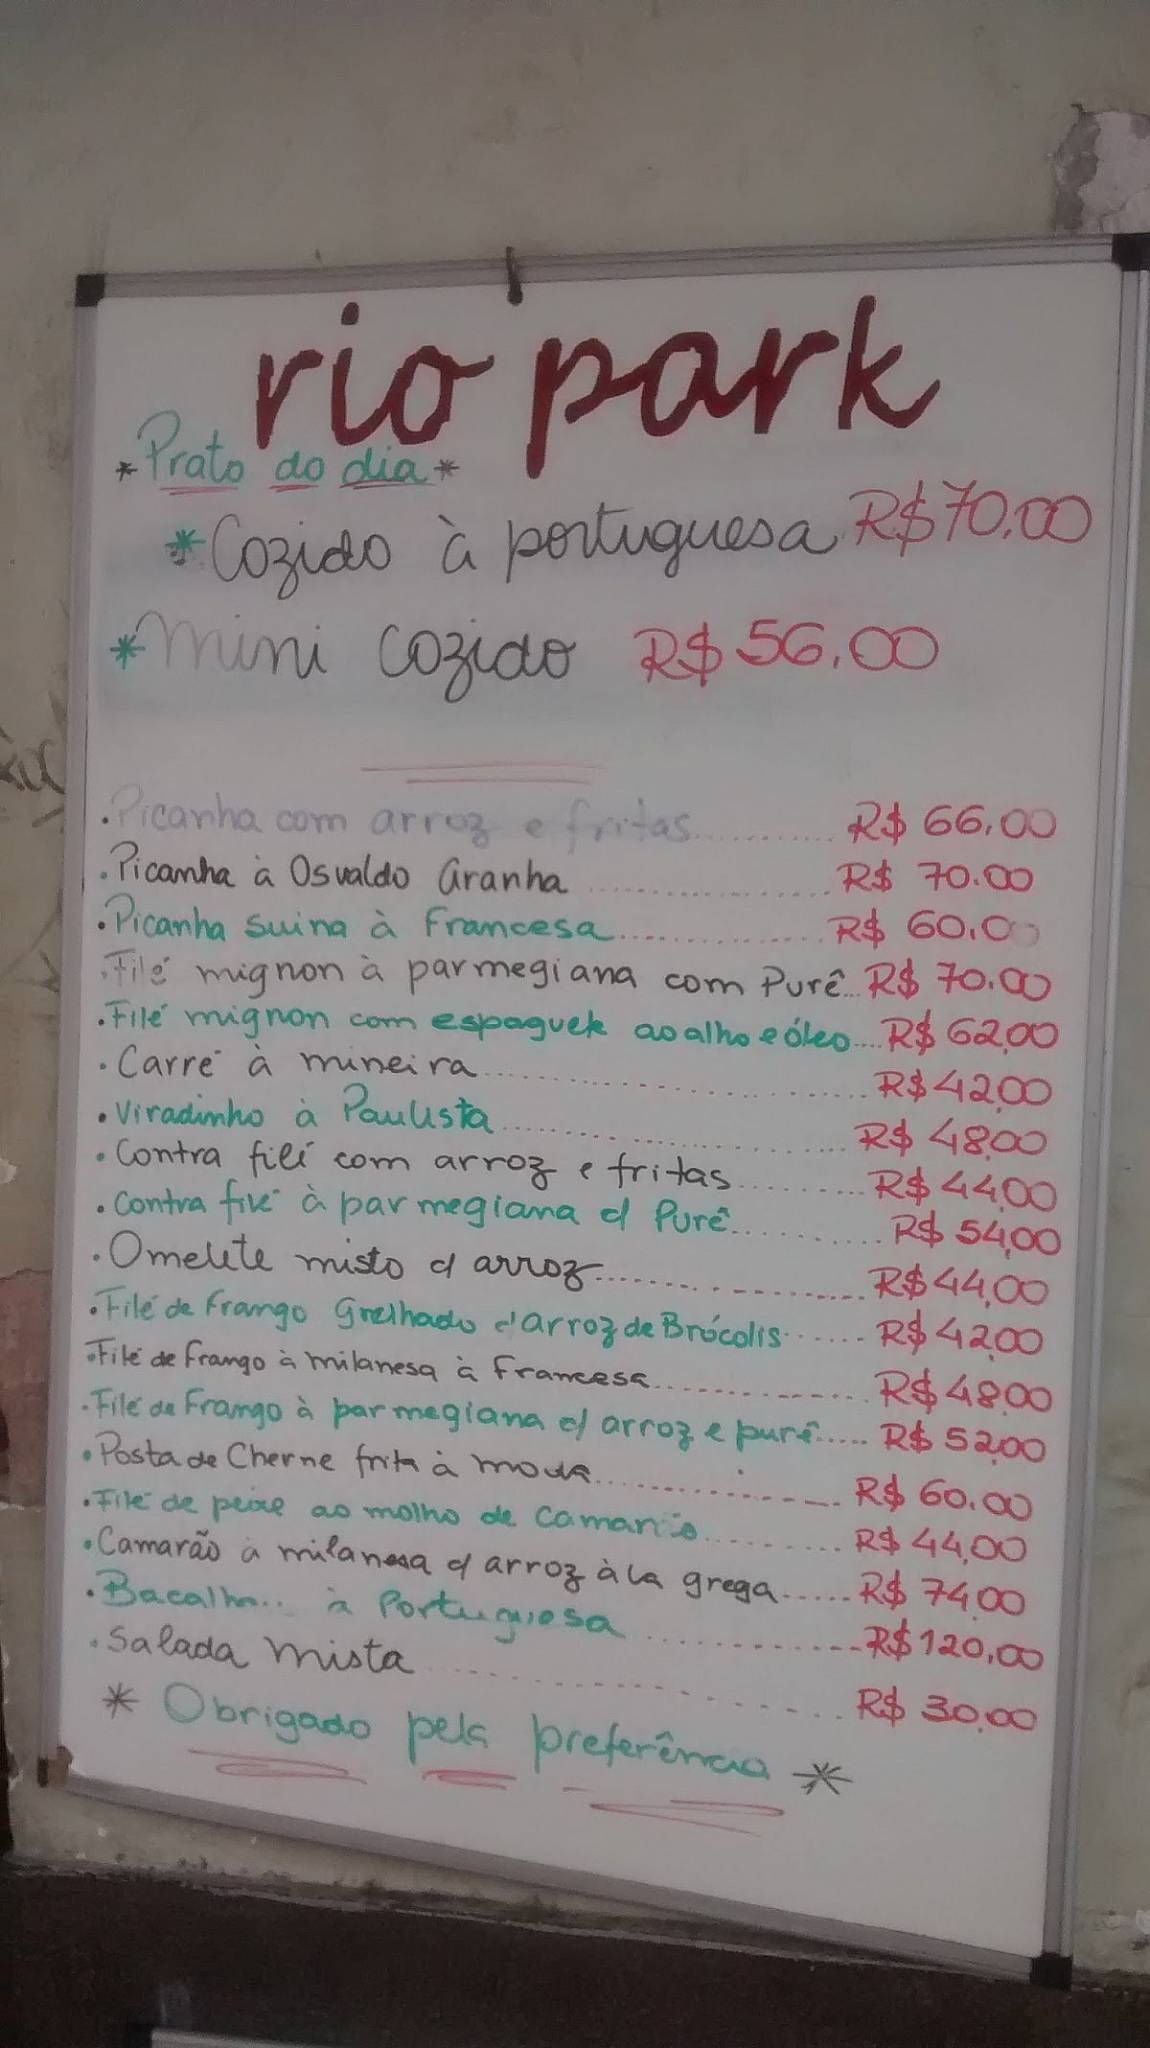 rio park
* Prato do dia *
* Cozido à portuguesa R$ 70,00
* Mini cozido R$ 56,00
. Picanha com arroz e fritas............ R$ 66,00
. Picanha à Osvaldo Aranha ............ R$ 70.00
. Picanha Suina à Francesa............ R$ 60,00
. Filé mignon à parmegiana com Purê... R$ 70,00
. Filé mignon com espaguete ao alho e óleo.... R$ 62,00
. Carré à mineira............ R$ 42,00
. Viradinho à Paulista............ R$ 48,00
. Contra filé com arroz e fritas............ R$ 44,00
. Contra filé à parmegiana c/ Purê............ R$ 54,00
. Omelete misto c/ arroz............ R$ 44,00
. Filé de Frango Grelhado c/ arroz de Brócolis...... R$ 42,00
. Filé de Frango à milanesa à Francesa............ R$ 48,00
. Filé de Frango à parmegiana c/ arroz e purê..... R$ 52,00
. Posta de Cherne frita à moda............ R$ 60,00
. Filé de peixe ao molho de camarão............ R$ 44,00
. Camarão à milanesa c/ arroz à la grega...... R$ 74,00
. à Portuguesa ............ R$ 120,00
. Salada Mista ............ R$ 30,00
* Obrigado pela preferência *